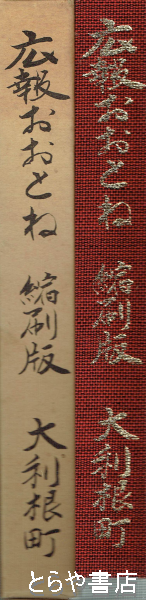 広報おおとね 縮刷版 大利根町
広報おおとね 縮刷版 大利根町
とらや書店